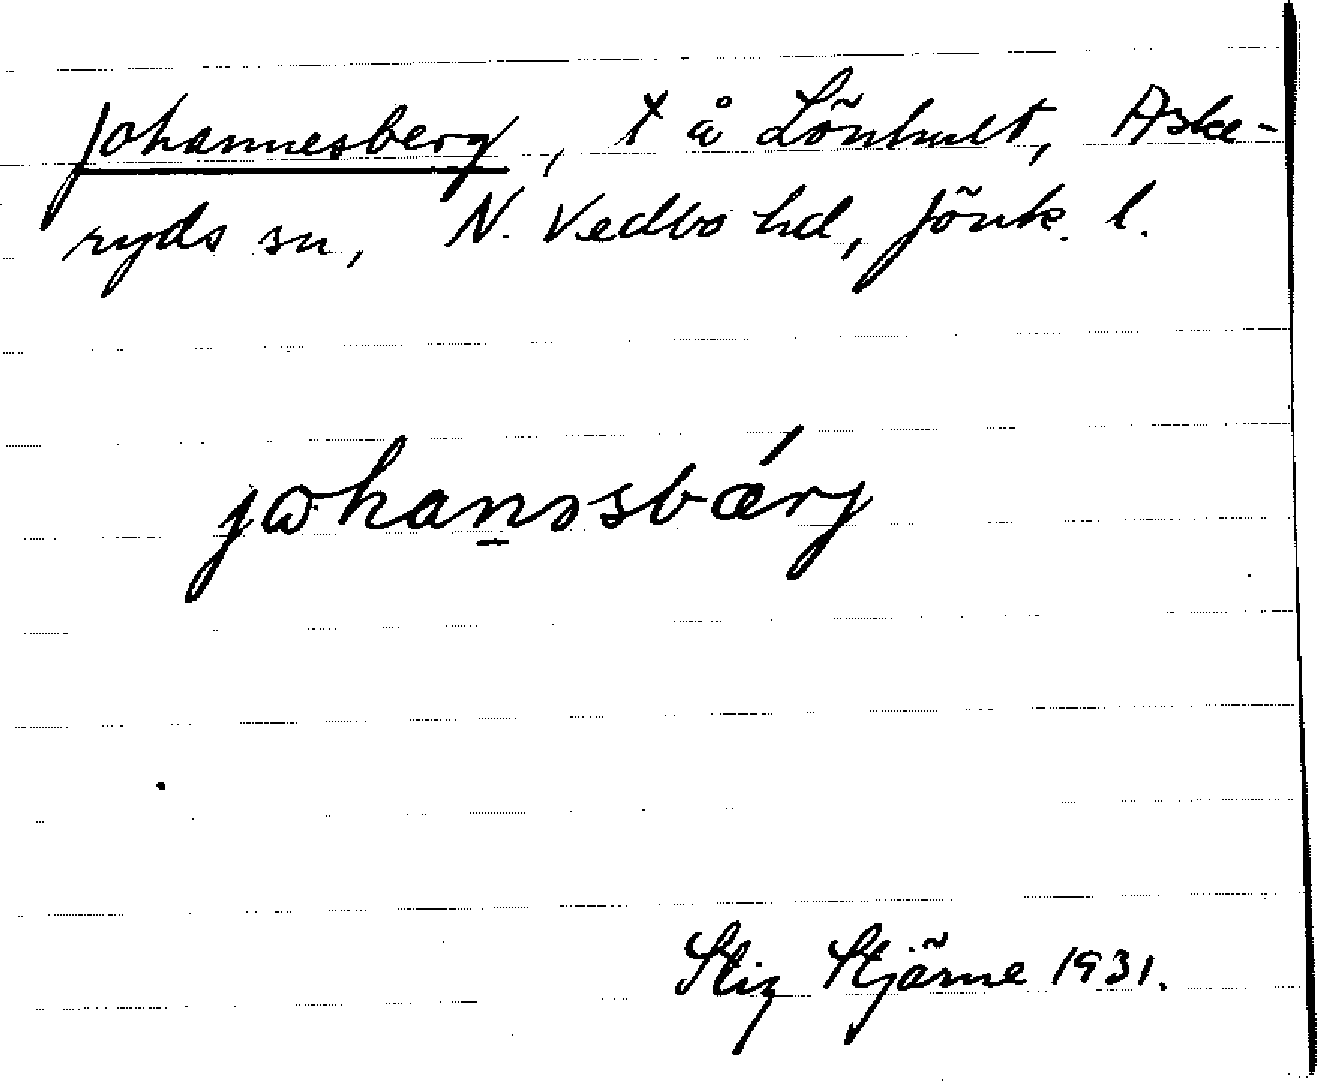 Johannesberg, t å Lönhult, Aske-
ryds sn, N. Vedbo hd, Jönk. l.
jωhanəsbǽrj
Stig Stjärne 1931.